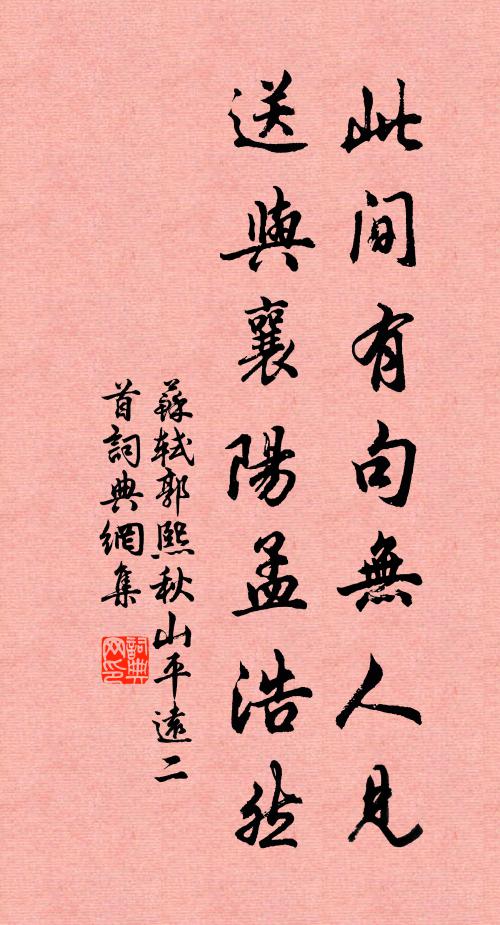 此間有句無人見
送與襄陽孟浩然
蘇軾郭熙秋山平遠二
首詞典網集
詞典網印